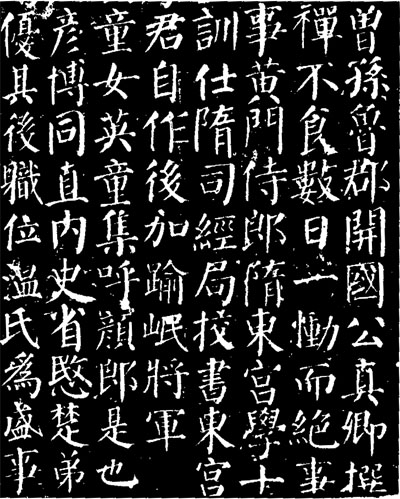 曾孫魯郡開國公真卿撰
禪不食數日一慟而絕事
事黃門侍郎隋東宮學士
訓仕隋司經局挍書東宮
君自作後加踰岷將軍
童女英童集呼顏郎是也
彦博同直内史省愍楚弟
優其後職位溫氏為盛事